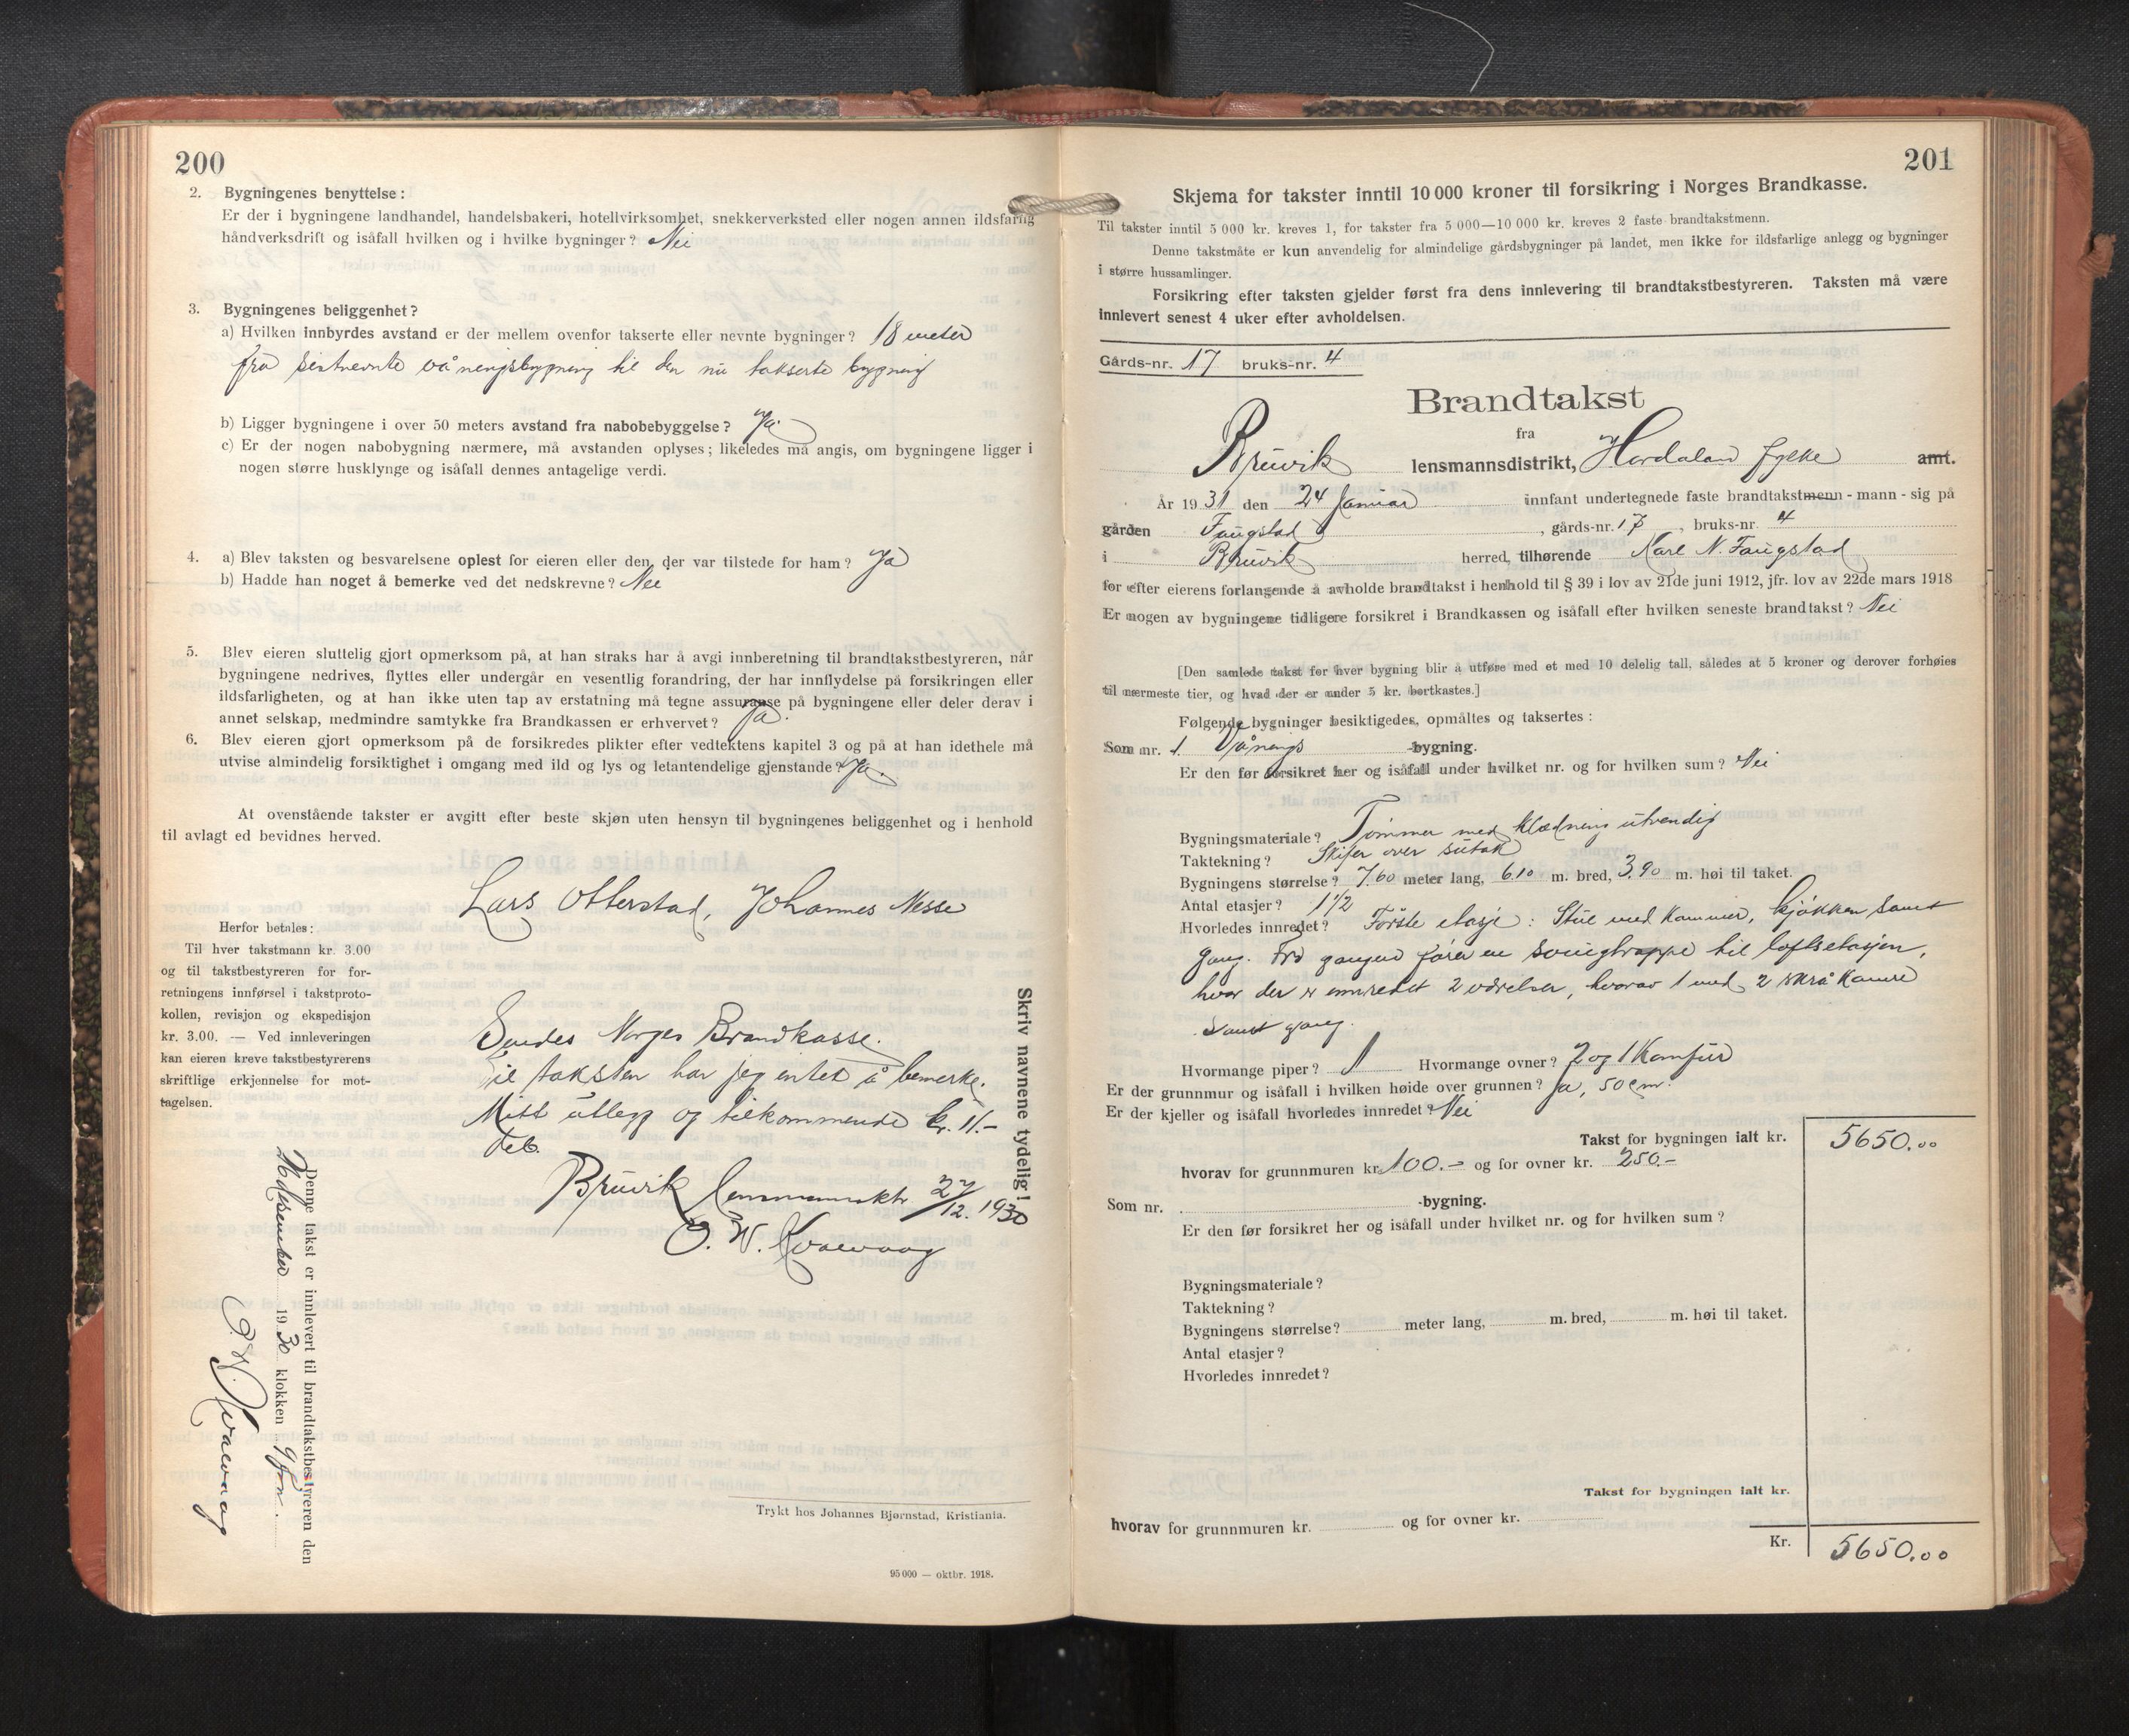 200
2. Bygningenes benyttelse:
Er der i bygningene landhandel, handelsbakeri, hotellvirksomhet, snekkerverksted eller nogen annen ildsfarlig
håndverksdrift og isåfall hvilken og i hvilke bygninger? Nei
3. Bygningenes beliggenhet?
a) Hvilken innbyrdes avstand er der mellem ovenfor takserte eller nevnte bygninger? 18 meter
fra sistnevnte våningsbygning til den nu takserte bygning
b) Ligger bygningene i over 50 meters avstand fra nabobebyggelse? Ja.
c) Er der nogen nabobygning nærmere, må avstanden oplyses; likeledes må angis, om bygningene ligger i
nogen større husklynge og isåfall dennes antagelige verdi.
4. a) Blev taksten og besvarelsene oplest for eieren eller den, der var tilstede for ham? Ja
b) Hadde han noget å bemerke ved det nedskrevne? Nei
5. Blev eieren sluttelig gjort opmerksom på, at han straks har å avgi innberetning til brandtakstbestyreren, når
bygningene nedrives, flyttes eller undergår en vesentlig forandring, der har innflydelse på forsikringen eller
ildsfarligheten, og at han ikke uten tap av erstatning må tegne assuranse på bygningene eller deler derav i
annet selskap, medmindre samtykke fra Brandkassen er erhvervet? Ja.
6. Blev eieren gjort opmerksom på de forsikredes plikter efter vedtektens kapitel 3 og på at han idethele må
utvise almindelig forsiktighet i omgang med ild og lys og letantendelige gjenstande? Ja.
At ovenstående takster er avgitt efter beste skjøn uten hensyn til bygningenes beliggenhet og i henhold
til avlagt ed bevidnes herved.
Lars Otterstad, Johannes Nesse
Herfor betales:
Til hver takstmann kr. 3.00
og til takstbestyreren for for-
retningens innførsel i takstproto-
kollen, revisjon og ekspedisjon
kr. 3.00. — Ved innleveringen
kan eieren kreve takstbestyrerens
skriftlige erkjennelse for mot-
tagelsen.
Sendes Norges Brandkasse.
Til taksten har jeg intet å bemerke.
Mitt utlegg og tilkommende kr. 11.-
Bruvik lensmannsktr. 27/12. 1930
O. W. Kvalvaag
Skriv navnene tydelig!
Denne takst er innlevert til brandtakstbestyreren den
19 30 klokken 9 fm.
O. W. Kvalvaag
Trykt hos Johannes Bjørnstad, Kristiania.
95 000 — oktbr. 1918.
201
Skjema for takster inntil 10 000 kroner til forsikring i Norges Brandkasse.
Til takster inntil 5 000 kr. kreves 1, for takster fra 5 000—10 000 kr. kreves 2 faste brandtakstmenn.
Denne takstmåte er kun anvendelig for almindelige gårdsbygninger på landet, men ikke for ildsfarlige anlegg og bygninger
i større hussamlinger.
Forsikring efter taksten gjelder først fra dens innlevering til brandtakstbestyreren. Taksten må være
innlevert senest 4 uker efter avholdelsen.
Gårds-nr. 17 bruks-nr. 4
Brandtakst
fra
Bruvik lensmannsdistrikt, Hordaland fylke amt.
År 19 31 den 24 Januar innfant undertegnede faste brandtakstmenn - mann - sig på
gården Faugstad, gårds-nr. 17, bruks-nr. 4
i Bruvik herred, tilhørende Karl N. Faugstad
for efter eierens forlangende å avholde brandtakst i henhold til § 39 i lov av 21de juni 1912, jfr. lov av 22de mars 1918
Er nogen av bygningene tidligere forsikret i Brandkassen og isåfall efter hvilken seneste brandtakst? Nei
[Den samlede takst for hver bygning blir å utføre med et med 10 delelig tall, således at 5 kroner og derover forhøies
til nærmeste tier, og hvad der er under 5 kr. bortkastes.]
Følgende bygninger besiktigedes, opmåltes og taksertes:
Som nr. 1. Vånings -bygning.
Er den før forsikret her og isåfall under hvilket nr. og for hvilken sum? Nei
Bygningsmateriale? Tømmer med klædning utvendig
Taktekning? Skifer over sutak
Bygningens størrelse? 7.60 meter lang, 6.10 m. bred, 3.90 m. høi til taket.
Antal etasjer? 1 1/2
Hvorledes innredet? Første etasje: Stue med kammer, kjøkken samt
gang. Fra gangen fører en svingtrappe til loftsetasjen,
hvor der er innredet 2 værelser, hvorav 1 med 2 skråkamre
samt gang.
Hvormange piper? 1 Hvormange ovner? 2 og 1 Komfur
Er der grunnmur og isåfall i hvilken høide over grunnen? Ja, 50 cm.
Er der kjeller og isåfall hvorledes innredet? Nei
Takst for bygningen ialt kr. 5650.00
hvorav for grunnmuren kr. 100.- og for ovner kr. 250.-
Som nr. -bygning.
Er den før forsikret her og isåfall under hvilket nr. og for hvilken sum?
Bygningsmateriale?
Taktekning?
Bygningens størrelse? meter lang, m. bred, m. høi til taket.
Antal etasjer?
Hvorledes innredet?
Takst for bygningen ialt kr.
hvorav for grunnmuren kr. og for ovner kr.
Kr. 5650.00